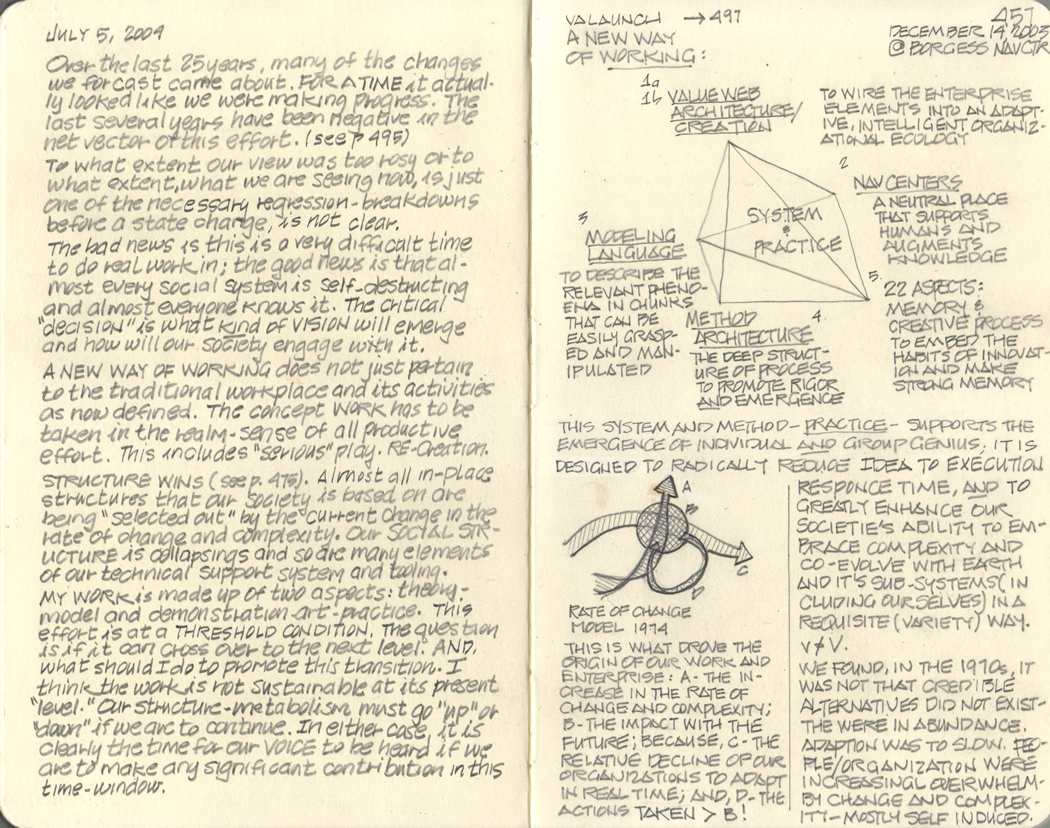 JULY 5, 2004
Over the last 25 years, many of the changes
we forcast came about. FOR A TIME it actual-
ly looked like we were making progress. The
last several years have been negative in the
net vector of this effort. (see p 495)
To what extent our view was too rosy or to
what extent, what we are seeing now, is just
one of the necessary regression-breakdowns
before a state change, is not clear.
The bad news is this is a very difficult time
to do real work in; the good news is that al-
most every social system is self-destructing
and almost everyone knows it. The critical
"decision" is what kind of VISION will emerge
and how will our society engage with it.
A NEW WAY OF WORKING does not just pertain
to the traditional workplace and its activities
as now defined. The concept WORK has to be
taken in the realm-sense of all productive
effort. This includes "serious" play. RE-Creation.
STRUCTURE WINS (see p. 475). Almost all in-place
structures that our society is based on are
being "selected out" by the current change in the
rate of change and complexity. Our SOCIAL STR-
UCTURE is collapsings and so are many elements
of our technical support system and tooling.
MY WORK is made up of two aspects: theory-
model and demonstration-art-practice. This
effort is at a THRESHOLD CONDITION. The question
is if it can cross over to the next level. AND,
what should I do to promote this transition. I
think the work is not sustainable at its present
"level." Our structure-metabolism must go "up" or
"down" if we are to continue. In either case, it is
clearly the time for our VOICE to be heard if we
are to make any significant contribution in this
time-window.
457
VALAUNCH → 497
DECEMBER 14, 2003
@ BORGESS NAVCTR
A NEW WAY
OF WORKING:
1a
1b VALUE WEB
ARCHITECTURE/
CREATION
TO WIRE THE ENTERPRISE
ELEMENTS INTO AN ADAPT-
IVE, INTELLIGENT ORGANIZ-
ATIONAL ECOLOGY
2
NAV CENTERS
A NEUTRAL PLACE
THAT SUPPORTS
HUMANS AND
AUGMENTS
KNOWLEDGE
SYSTEM
&
PRACTICE
3
MODELING
LANGUAGE
TO DESCRIBE THE
RELEVANT PHENO-
ENA IN CHUNKS
THAT CAN BE
EASILY GRASP-
ED AND MAN-
IPULATED
4.
METHOD
ARCHITECTURE
THE DEEP STRUCT-
URE OF PROCESS
TO PROMOTE RIGOR
AND EMERGENCE
5.
22 ASPECTS:
MEMORY &
CREATIVE PROCESS
TO EMBED THE
HABITS OF INNOVAT-
ION AND MAKE
STRONG MEMORY
THIS SYSTEM AND METHOD - PRACTICE - SUPPORTS THE
EMERGENCE OF INDIVIDUAL AND GROUP GENIUS; IT IS
DESIGNED TO RADICALLY REDUCE IDEA TO EXECUTION
A
B
C
D
RATE OF CHANGE
MODEL 1974
THIS IS WHAT DROVE THE
ORIGIN OF OUR WORK AND
ENTERPRISE: A- THE IN-
CREASE IN THE RATE OF
CHANGE AND COMPLEXITY;
B- THE IMPACT WITH THE
FUTURE; BECAUSE, C- THE
RELATIVE DECLINE OF OUR
ORGANIZATIONS TO ADAPT
IN REAL TIME; AND, D- THE
ACTIONS TAKEN > B!
RESPONCE TIME, AND TO
GREATLY ENHANCE OUR
SOCIETIE'S ABILITY TO EM-
BRACE COMPLEXITY AND
CO-EVOLVE WITH EARTH
AND IT'S SUB-SYSTEMS (IN
CLUDING OURSELVES) IN A
REQUISITE (VARIETY) WAY.
V≠V.
WE FOUND, IN THE 1970s, IT
WAS NOT THAT CREDIBLE
ALTERNATIVES DID NOT EXIST-
THE WERE IN ABUNDANCE.
ADAPTION WAS TO SLOW. PEO-
PLE/ORGANIZATION WERE
INCREASINGL OVERWHELM-
BY CHANGE AND COMPLEX-
ITY- MOSTLY SELF INDUCED.